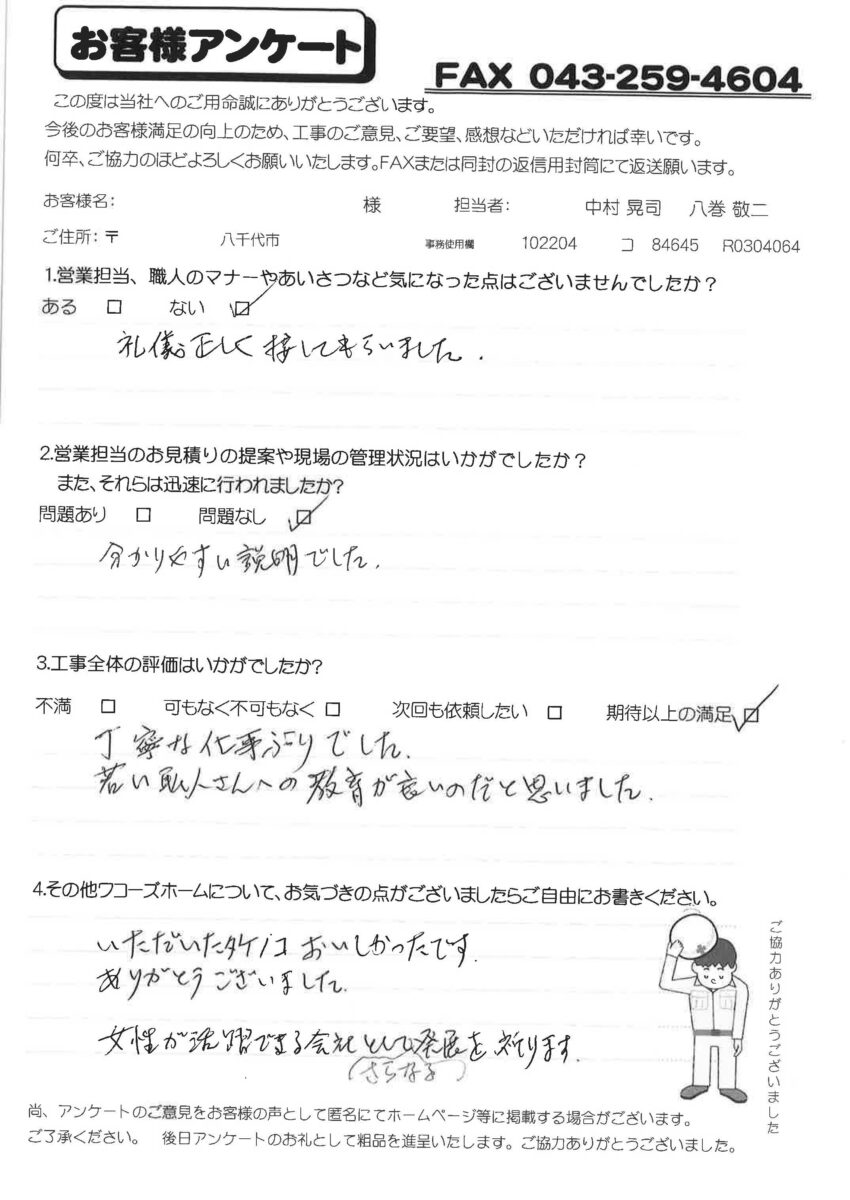 お客様アンケート
FAX 043-259-4604
この度は当社へのご用命誠にありがとうございます。
今後のお客様満足の向上のため、工事のご意見、ご要望、感想などいただければ幸いです。
何卒、ご協力のほどよろしくお願いいたします。FAXまたは同封の返信用封筒にて返送願います。
お客様名: 様 担当者: 中村 晃司 八巻 敬二
ご住所:〒 八千代市 事務使用欄 102204 コ 84645 R0304064
1.営業担当、職人のマナーやあいさつなど気になった点はございませんでしたか?
ある □ ない ☑
礼儀正しく接してもらいました.
2.営業担当のお見積りの提案や現場の管理状況はいかがでしたか?
また、それらは迅速に行われましたか?
問題あり □ 問題なし ☑
分かりやすい説明でした.
3.工事全体の評価はいかがでしたか?
不満 □ 可もなく不可もなく □ 次回も依頼したい □ 期待以上の満足 ☑
丁寧な仕事ぶりでした.
若い職人さんへの教育が良いのだと思いました.
4.その他ワコーズホームについて、お気づきの点がございましたらご自由にお書きください。
いただいたタケノコおいしかったです.
ありがとうございました.
女性が活躍できる会社として発展を祈ります.
(さらなる)
ご協力ありがとうございました
尚、アンケートのご意見をお客様の声として匿名にてホームページ等に掲載する場合がございます。
ご了承ください。 後日アンケートのお礼として粗品を進呈いたします。ご協力ありがとうございました。